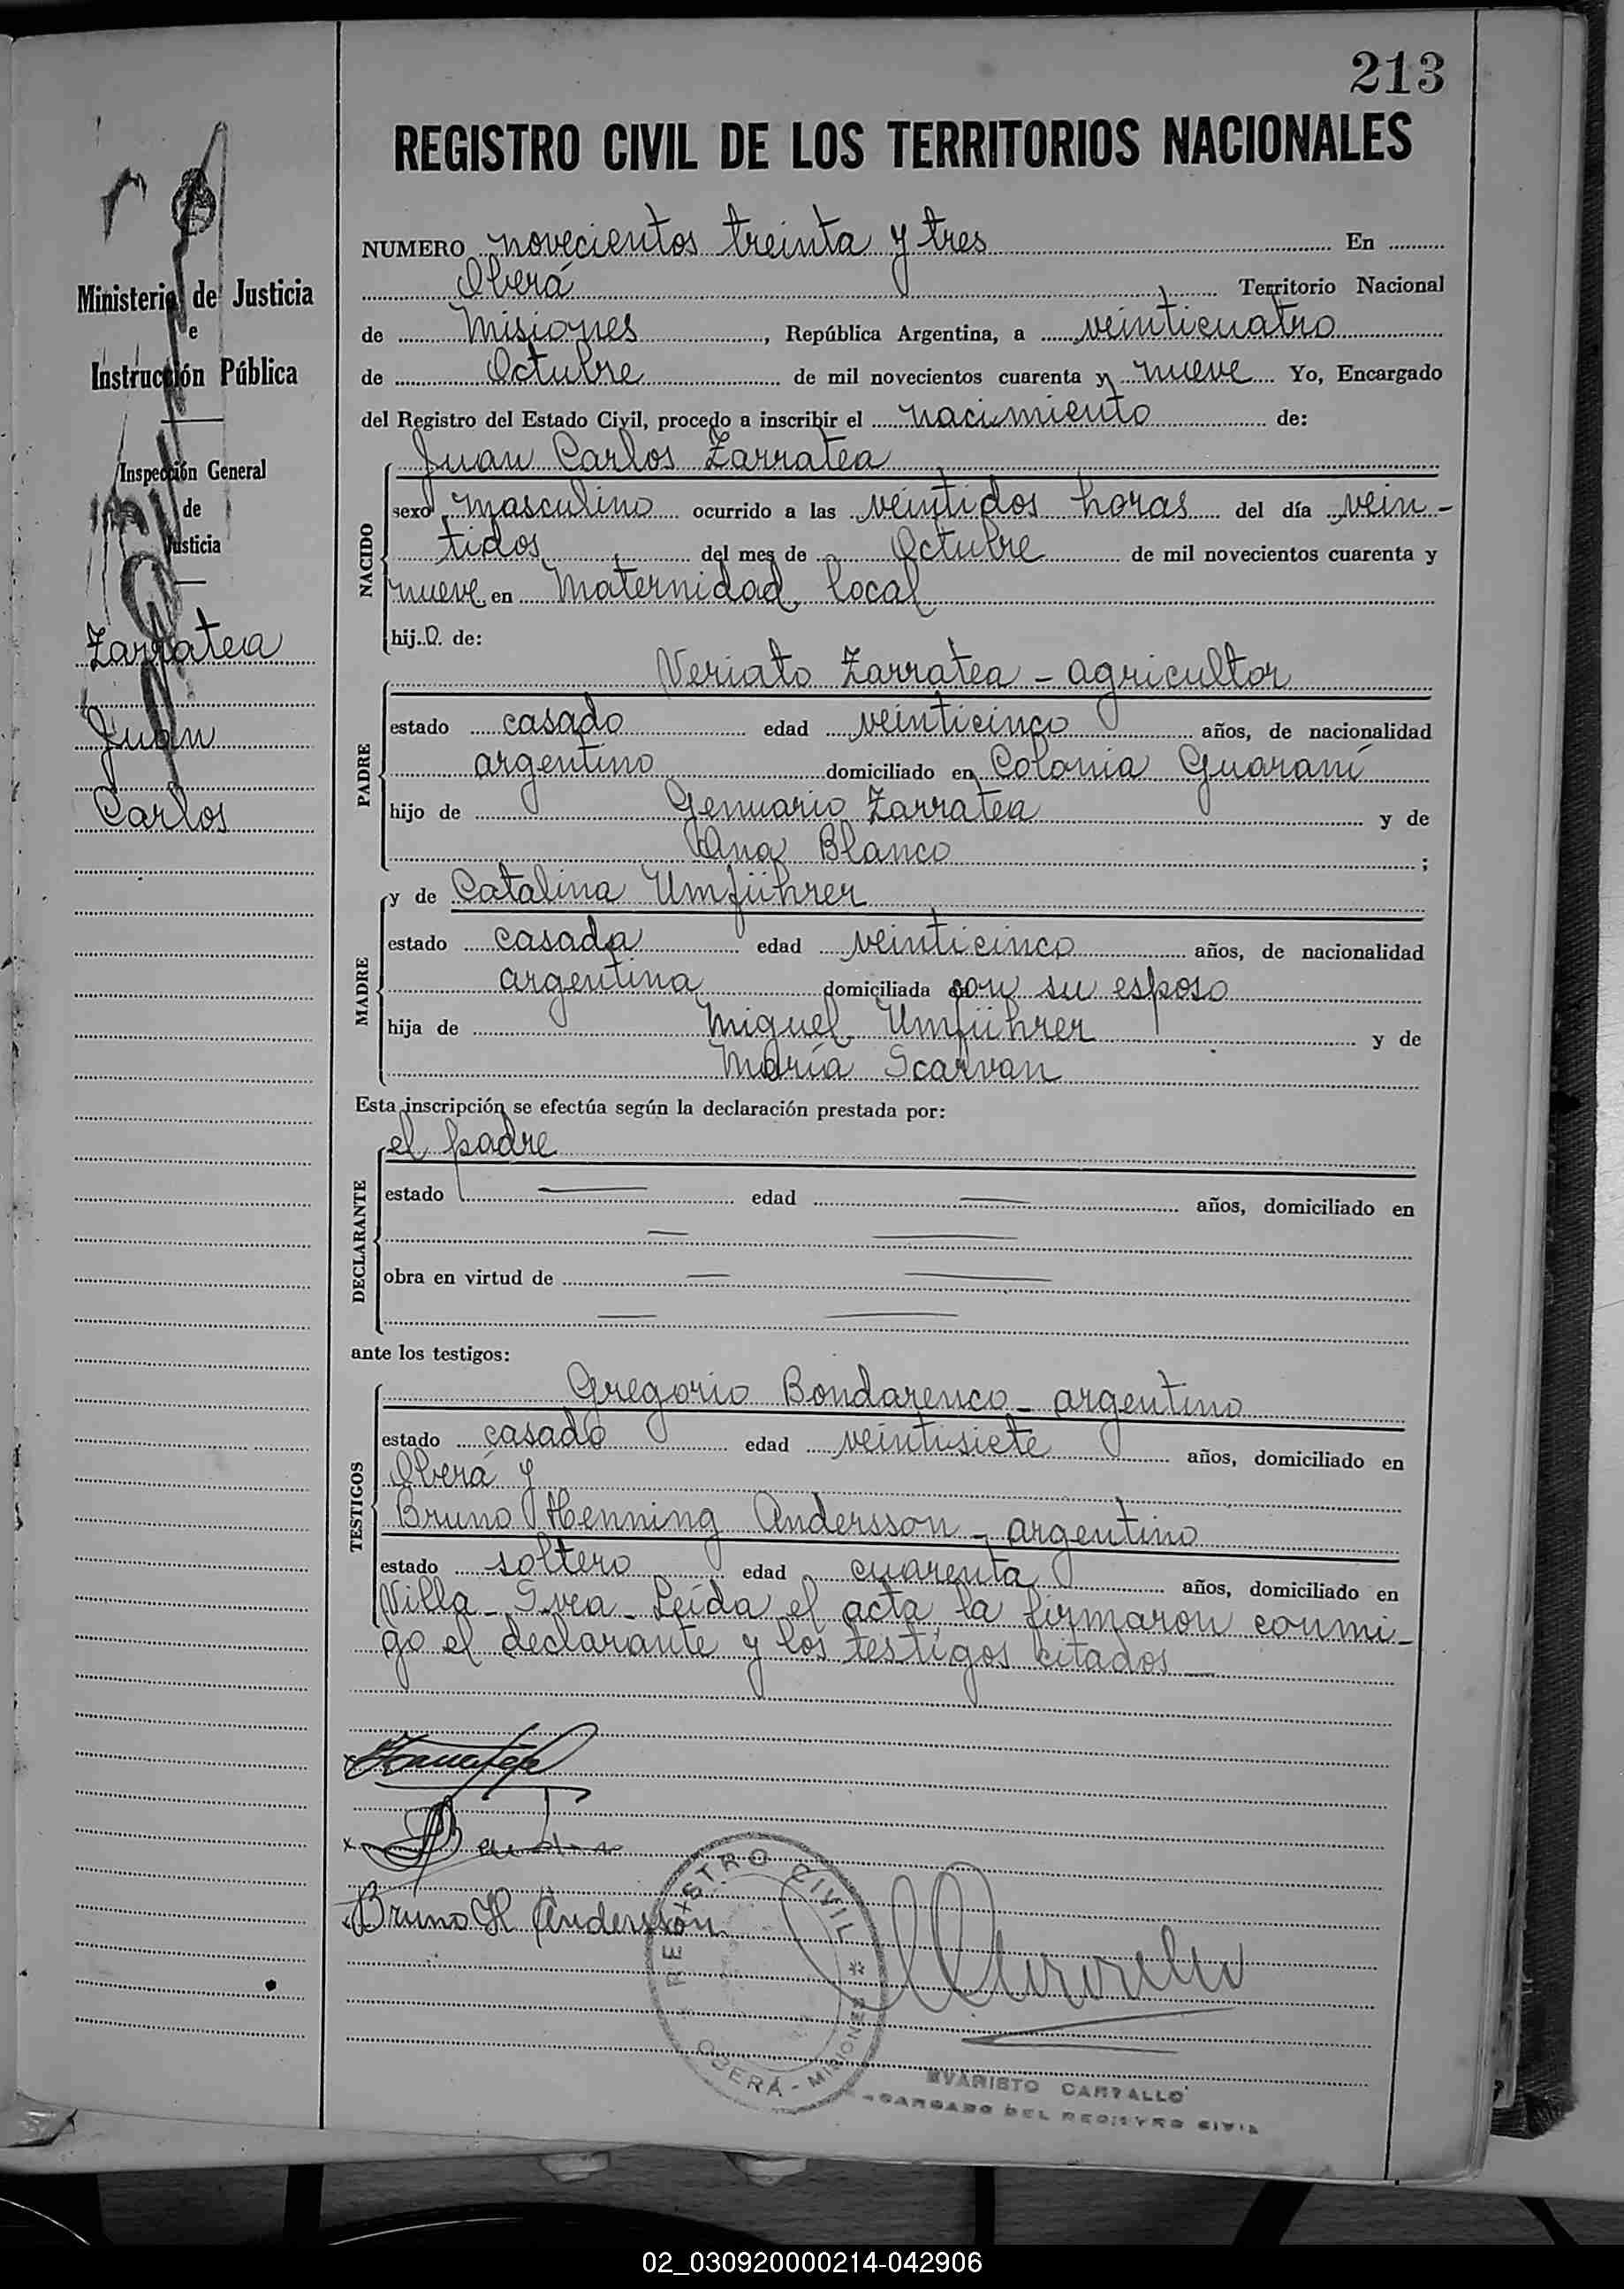 213
REGISTRO CIVIL DE LOS TERRITORIOS NACIONALES
Ministerio de Justicia
e
Instrucción Pública
Inspección General
de
Justicia
Zarratea
Juan
Carlos
NUMERO novecientos treinta y tres En
Oberá Territorio Nacional
de Misiones, República Argentina, a veinticuatro
de Octubre de mil novecientos cuarenta y nueve Yo, Encargado
del Registro del Estado Civil, procedo a inscribir el nacimiento de:
NACIDO
Juan Carlos Zarratea
sexo masculino ocurrido a las veintidos horas del día vein-
tidos del mes de Octubre de mil novecientos cuarenta y
nueve en Maternidad local
hij.o. de:
PADRE
Veriato Zarratea - agricultor
estado casado edad veinticinco años, de nacionalidad
argentino domiciliado en Colonia Guaraní
hijo de Genuario Zarratea y de
Ana Blanco ;
MADRE
y de Catalina Umführer
estado casada edad veinticinco años, de nacionalidad
argentina domiciliada con su esposo
hija de Miguel Umführer y de
María Scarvan
Esta inscripción se efectúa según la declaración prestada por:
DECLARANTE
el padre
estado — edad — años, domiciliado en
— —
obra en virtud de — —
— —
ante los testigos:
TESTIGOS
Gregorio Bondarenco - argentino
estado casado edad veintisiete años, domiciliado en
Oberá y
Bruno Henning Andersson - argentino
estado soltero edad cuarenta años, domiciliado en
Villa - Svea - Leída el acta la firmaron conmi-
go el declarante y los testigos citados —
Bruno H Andersson
REGISTRO CIVIL
OBERÁ - MISIONES
EVARISTO CARVALLO
ENCARGADO DEL REGISTRO CIVIL
02_030920000214-042906